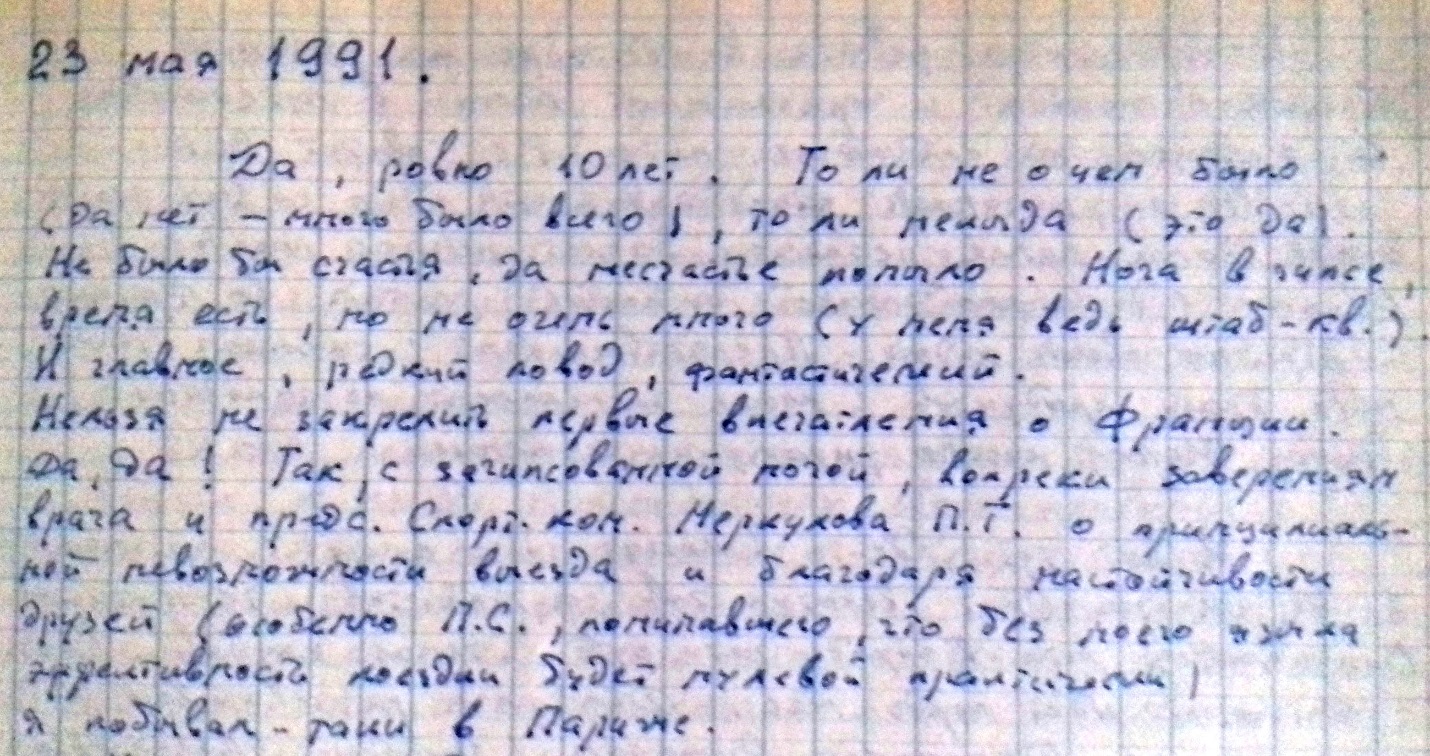 23 мая 1991.
Да, ровно 10 лет. То ли не о чем было
(да нет – много было всего), то ли некогда (это да).
Не было бы счастья, да несчастье помогло. Нога в гипсе,
время есть, но не очень много (у меня ведь штаб-кв.).
И главное, редкий повод, фантастический.
Нельзя не закрепить первые впечатления о Франции.
Да, да! Так, с загипсованной ногой, вопреки заверениям
врача и предс. Спорт. ком. Меркулова П.Т. о принципиаль-
ной невозможности выезда и благодаря настойчивости
друзей (особенно П.С., понимавшего, что без моего языка
эффективность поездки будет нулевой практически)
я побывал-таки в Париже.